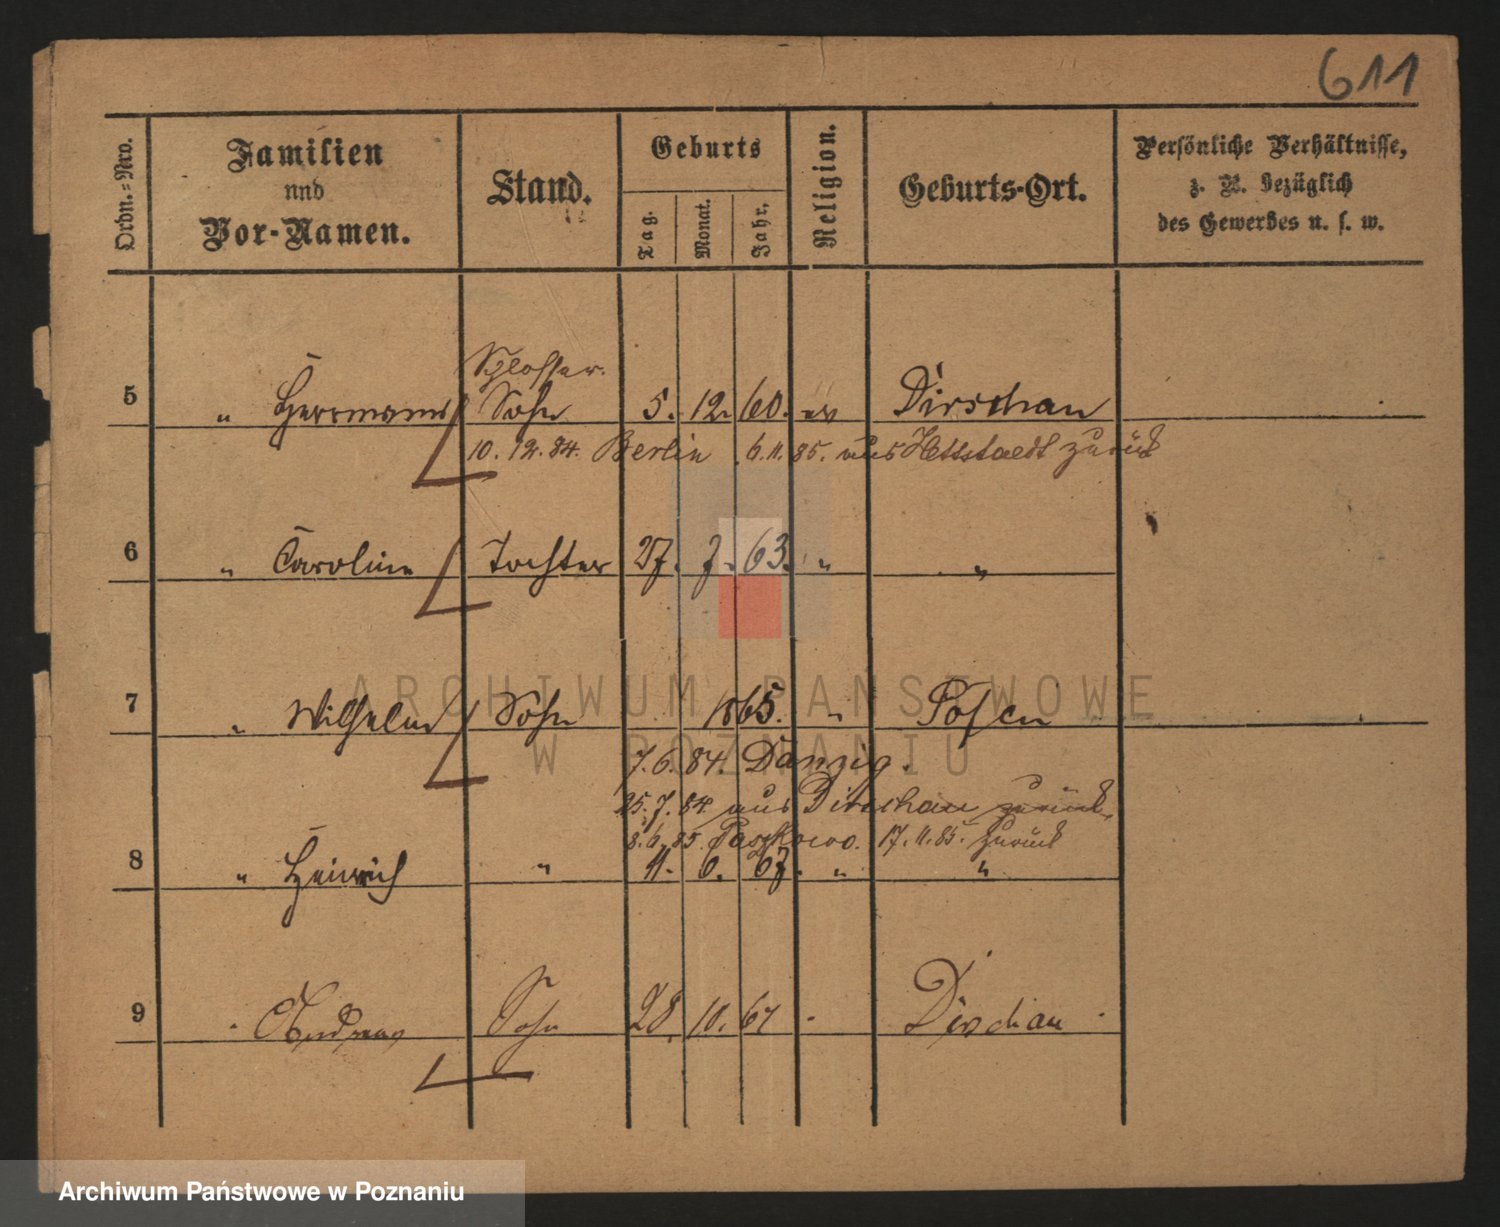 611
Ordn.=Nro.
Familien
und
Vor-Namen.
Stand.
Geburts
Tag.
Monat.
Jahr.
Religion.
Geburts-Ort.
Persönliche Verhältnisse,
z. B. bezüglich
des Gewerbes u. s. w.
Schlosser.
5 " Herrmann Sohn 5. 12. 60. ev Dirschau
10. 12. 84. Berlin 6. 11. 85. aus Hettstaedt zurück
6 " Caroline Tochter 27. 7. 63. " "
7 " Wilhelm Sohn 1865. " Posen
7. 6. 84. Danzig.
25. 7. 84. aus Dirschau zurück
8. 6. 85. 17. 11. 85. zurück
8 " Heinrich " 11. 6. 67. " "
9 " Andreas Sohn 28. 10. 67 " Dirschau
ARCHIWUM PAŃSTWOWE
W POZNANIU
Archiwum Państwowe w Poznaniu